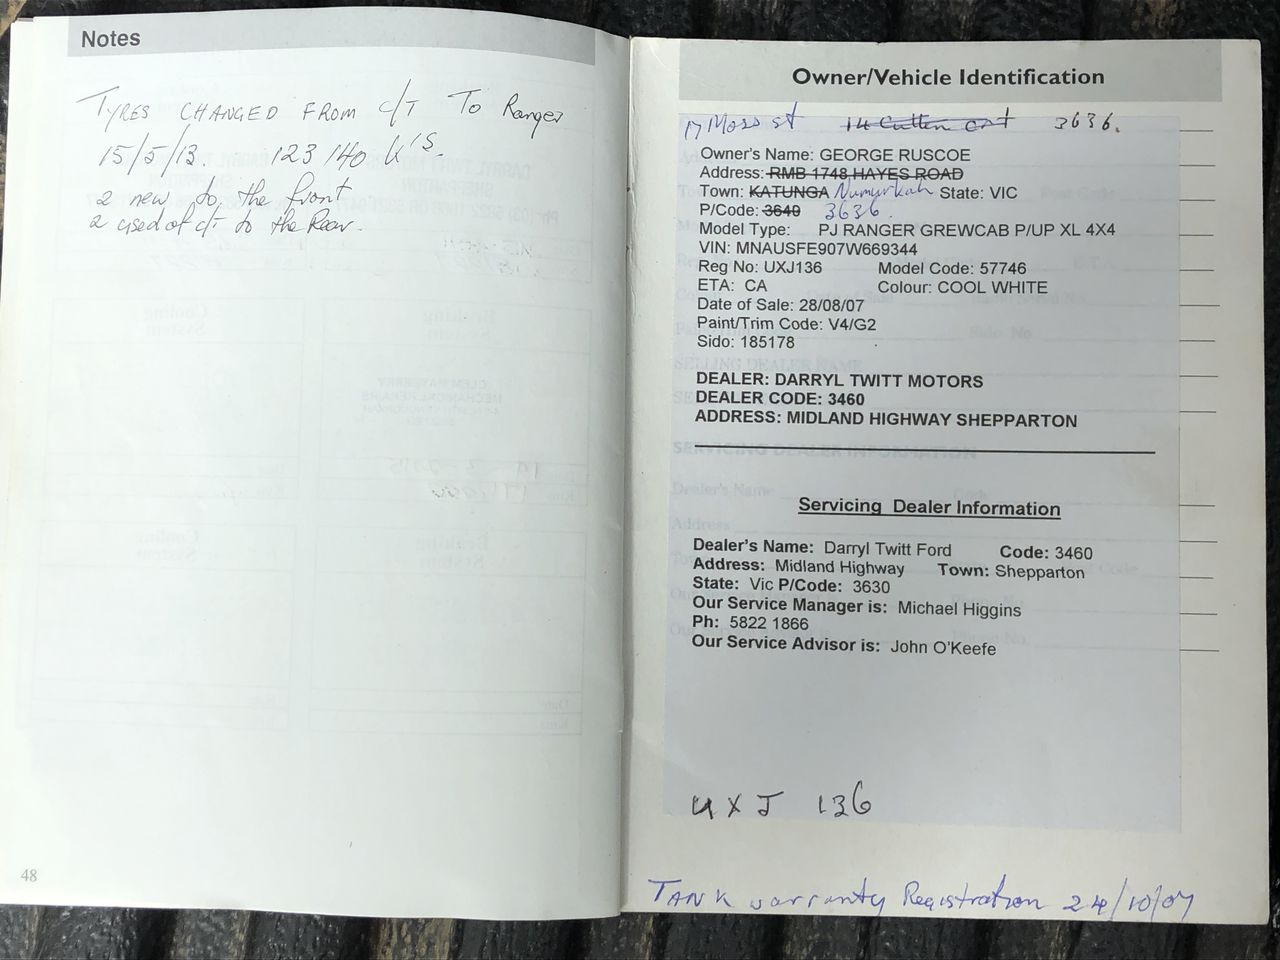 Notes
TYRES CHANGED FROM C/T To Ranger
15/5/13. 123 140 K'S.
2 new to the front
2 used of C/T to the Rear.
48
Owner/Vehicle Identification
17 Moss st 14 Cutten 3636.
Owner's Name: GEORGE RUSCOE
Address: RMB 1748 HAYES ROAD
Town: KATUNGA Numurkah State: VIC
P/Code: 3640 3636.
Model Type: PJ RANGER GREWCAB P/UP XL 4X4
VIN: MNAUSFE907W669344
Reg No: UXJ136 Model Code: 57746
ETA: CA Colour: COOL WHITE
Date of Sale: 28/08/07
Paint/Trim Code: V4/G2
Sido: 185178
DEALER: DARRYL TWITT MOTORS
DEALER CODE: 3460
ADDRESS: MIDLAND HIGHWAY SHEPPARTON
Servicing Dealer Information
Dealer's Name: Darryl Twitt Ford Code: 3460
Address: Midland Highway Town: Shepparton
State: Vic P/Code: 3630
Our Service Manager is: Michael Higgins
Ph: 5822 1866
Our Service Advisor is: John O'Keefe
UXJ 136
TANK warranty Registration 24/10/07